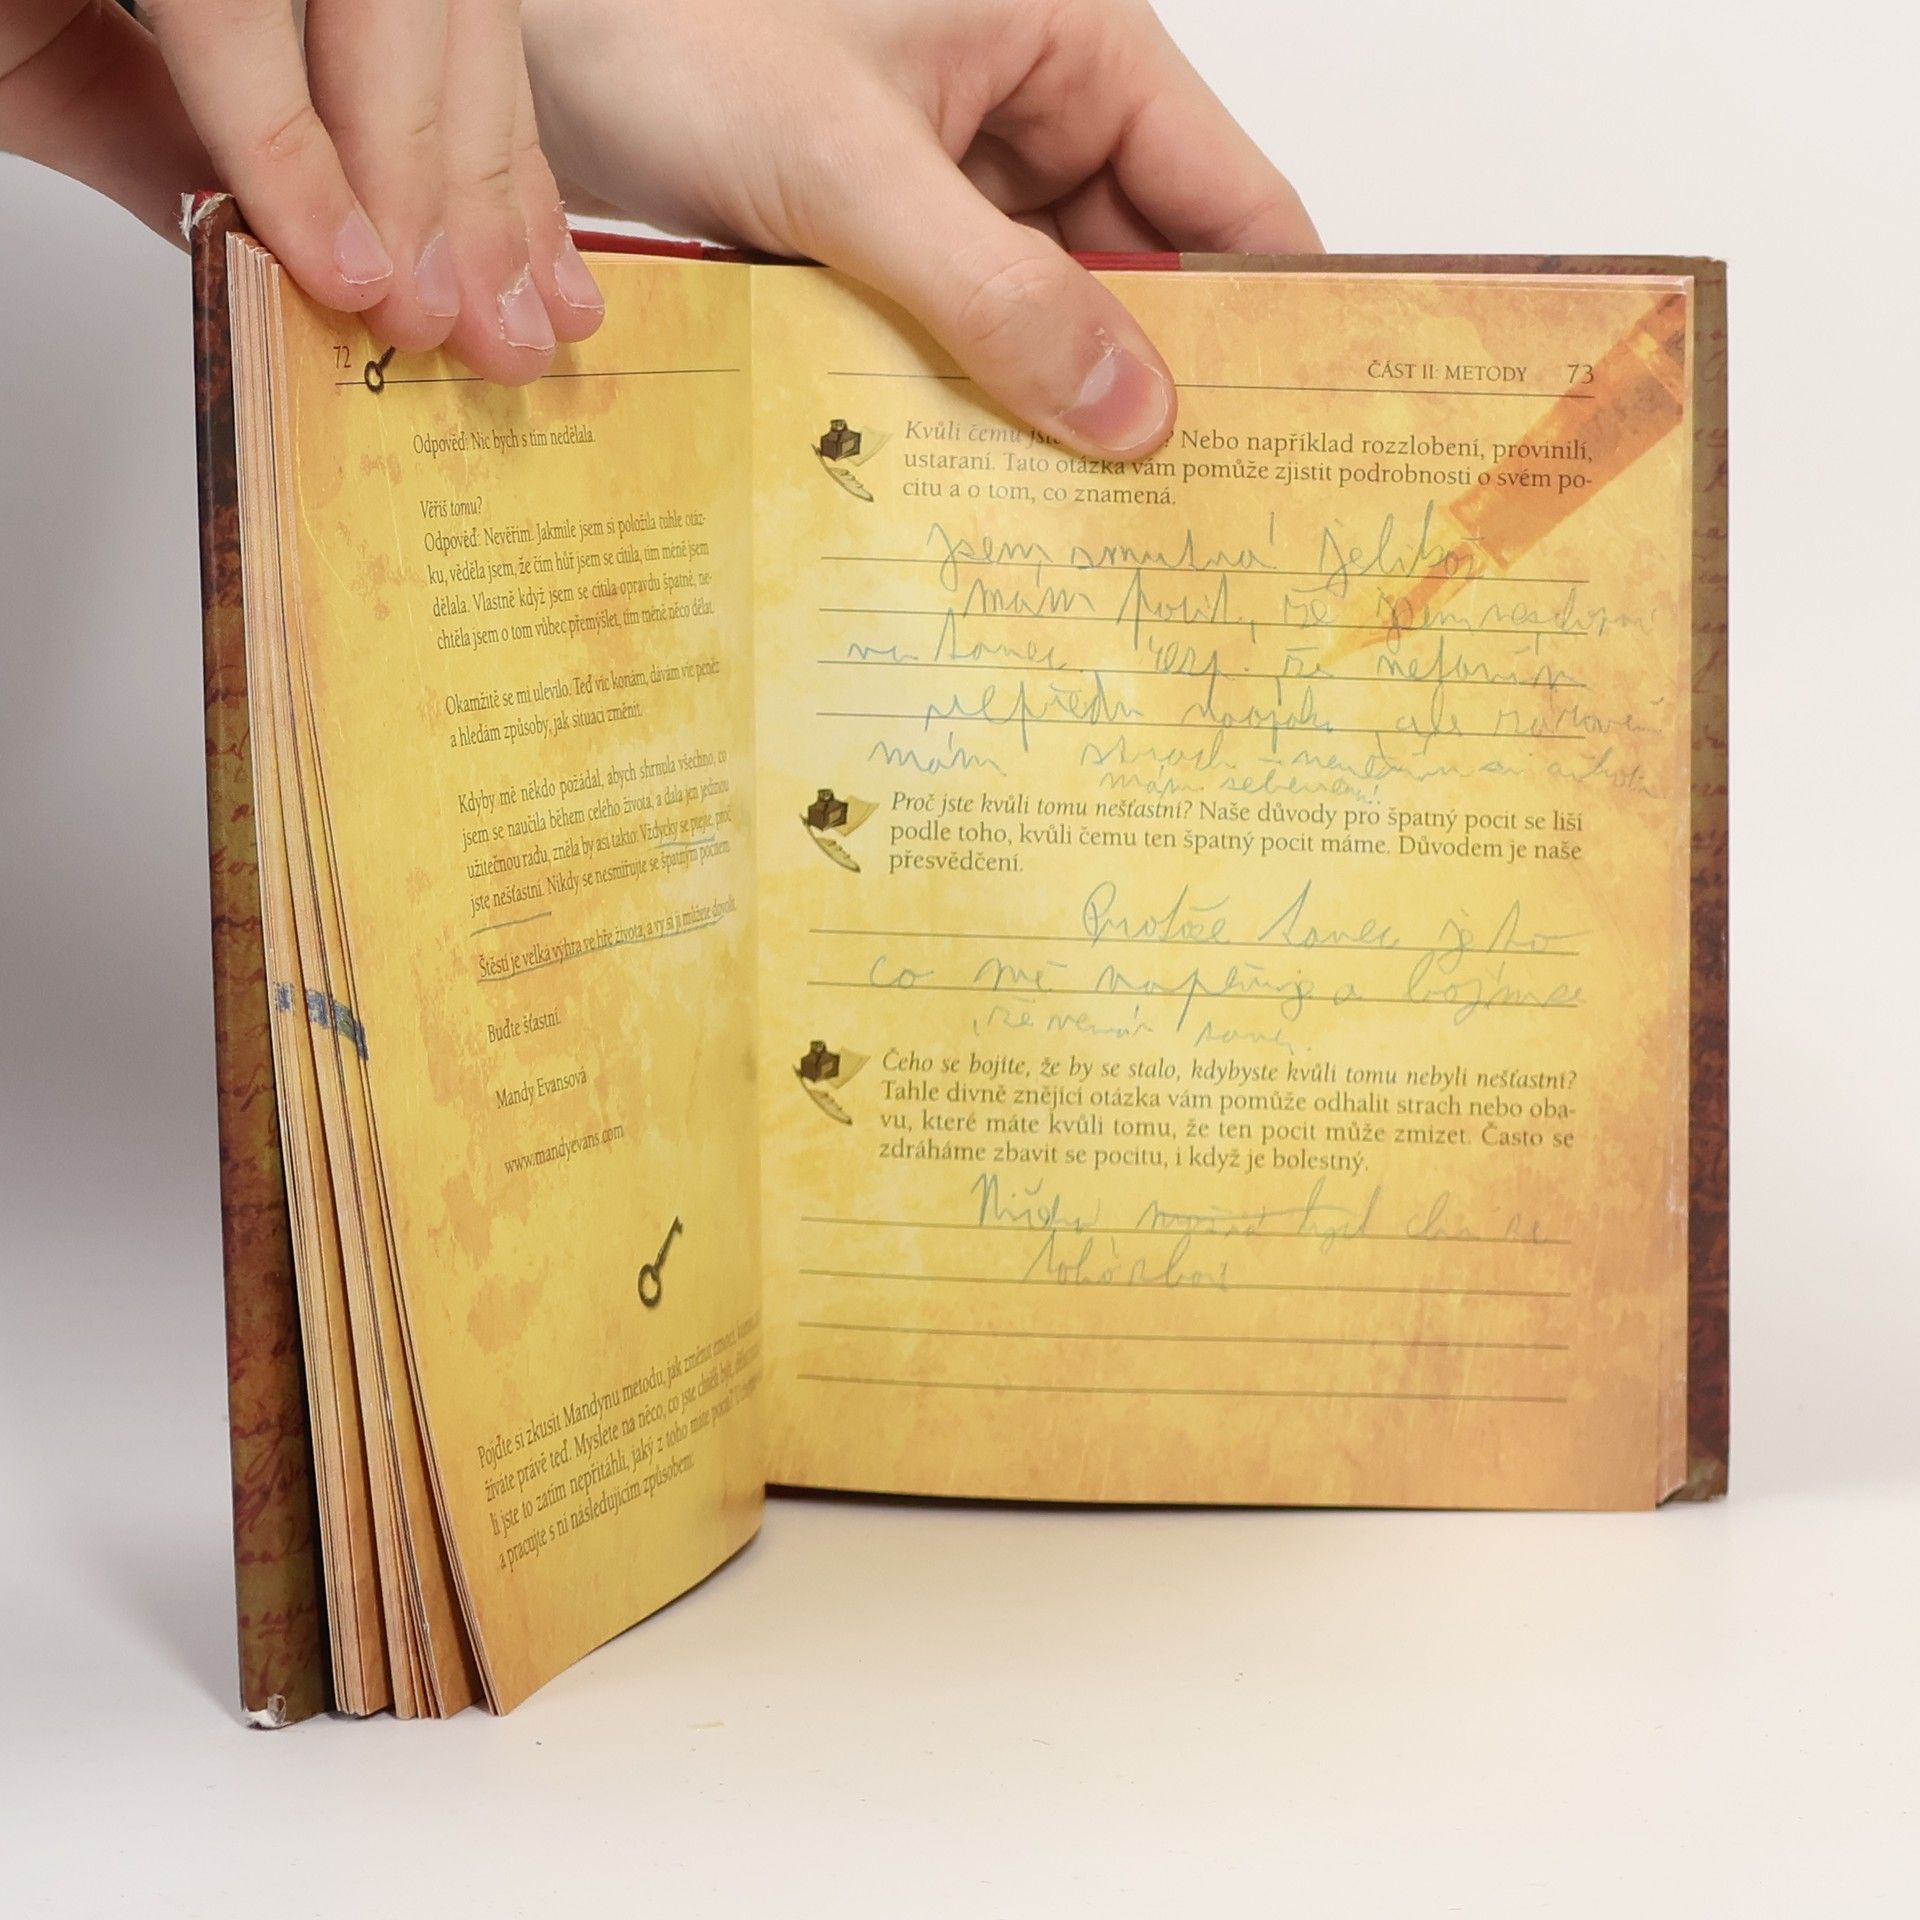 72
Odpověď: Nic bych s tím nedělala.
Věříš tomu?
Odpověď: Nevěřím. Jakmile jsem si položila tuhle otáz-
ku, věděla jsem, že čím hůř jsem se cítila, tím méně jsem
dělala. Vlastně když jsem se cítila opravdu špatně, ne-
chtěla jsem o tom vůbec přemýšlet, tím méně něco dělat.
Okamžitě se mi ulevilo. Teď víc konám, dávám víc peněz
a hledám způsoby, jak situaci změnit.
Kdyby mě někdo požádal, abych shrnula všechno, co
jsem se naučila během celého života, a dala jen jedinou
užitečnou radu, zněla by asi takto: Vždycky se ptejte, proč
jste nešťastní. Nikdy se nesmiřujte se špatným pocitem.
Štěstí je velká výhra ve hře života, a vy si ji můžete dovolit.
Buďte šťastní.
Mandy Evansová
www.mandyevans.com
Pojďte si zkusit Mandynu metodu, jak změnit emoci,
žíváte právě teď. Myslete na něco, co jste chtěli být,
li jste to zatím nepřitáhli, jaký z toho máte pocit?
a pracujte s ní následujícím způsobem:
ČÁST II: METODY 73
Kvůli čemu jste ? Nebo například rozzlobení, provinilí,
ustaraní. Tato otázka vám pomůže zjistit podrobnosti o svém po-
citu a o tom, co znamená.
jsem smutná jelikož
mám pocit, že jsem neschopná
na tanec, resp. že
ale
mám strach
mám
Proč jste kvůli tomu nešťastní? Naše důvody pro špatný pocit se liší
podle toho, kvůli čemu ten špatný pocit máme. Důvodem je naše
přesvědčení.
Protože tanec je to
co mě naplňuje a bojím se
, že nemám
Čeho se bojíte, že by se stalo, kdybyste kvůli tomu nebyli nešťastní?
Tahle divně znějící otázka vám pomůže odhalit strach nebo oba-
vu, které máte kvůli tomu, že ten pocit může zmizet. Často se
zdráháme zbavit se pocitu, i když je bolestný.
chci se
toho zbavit